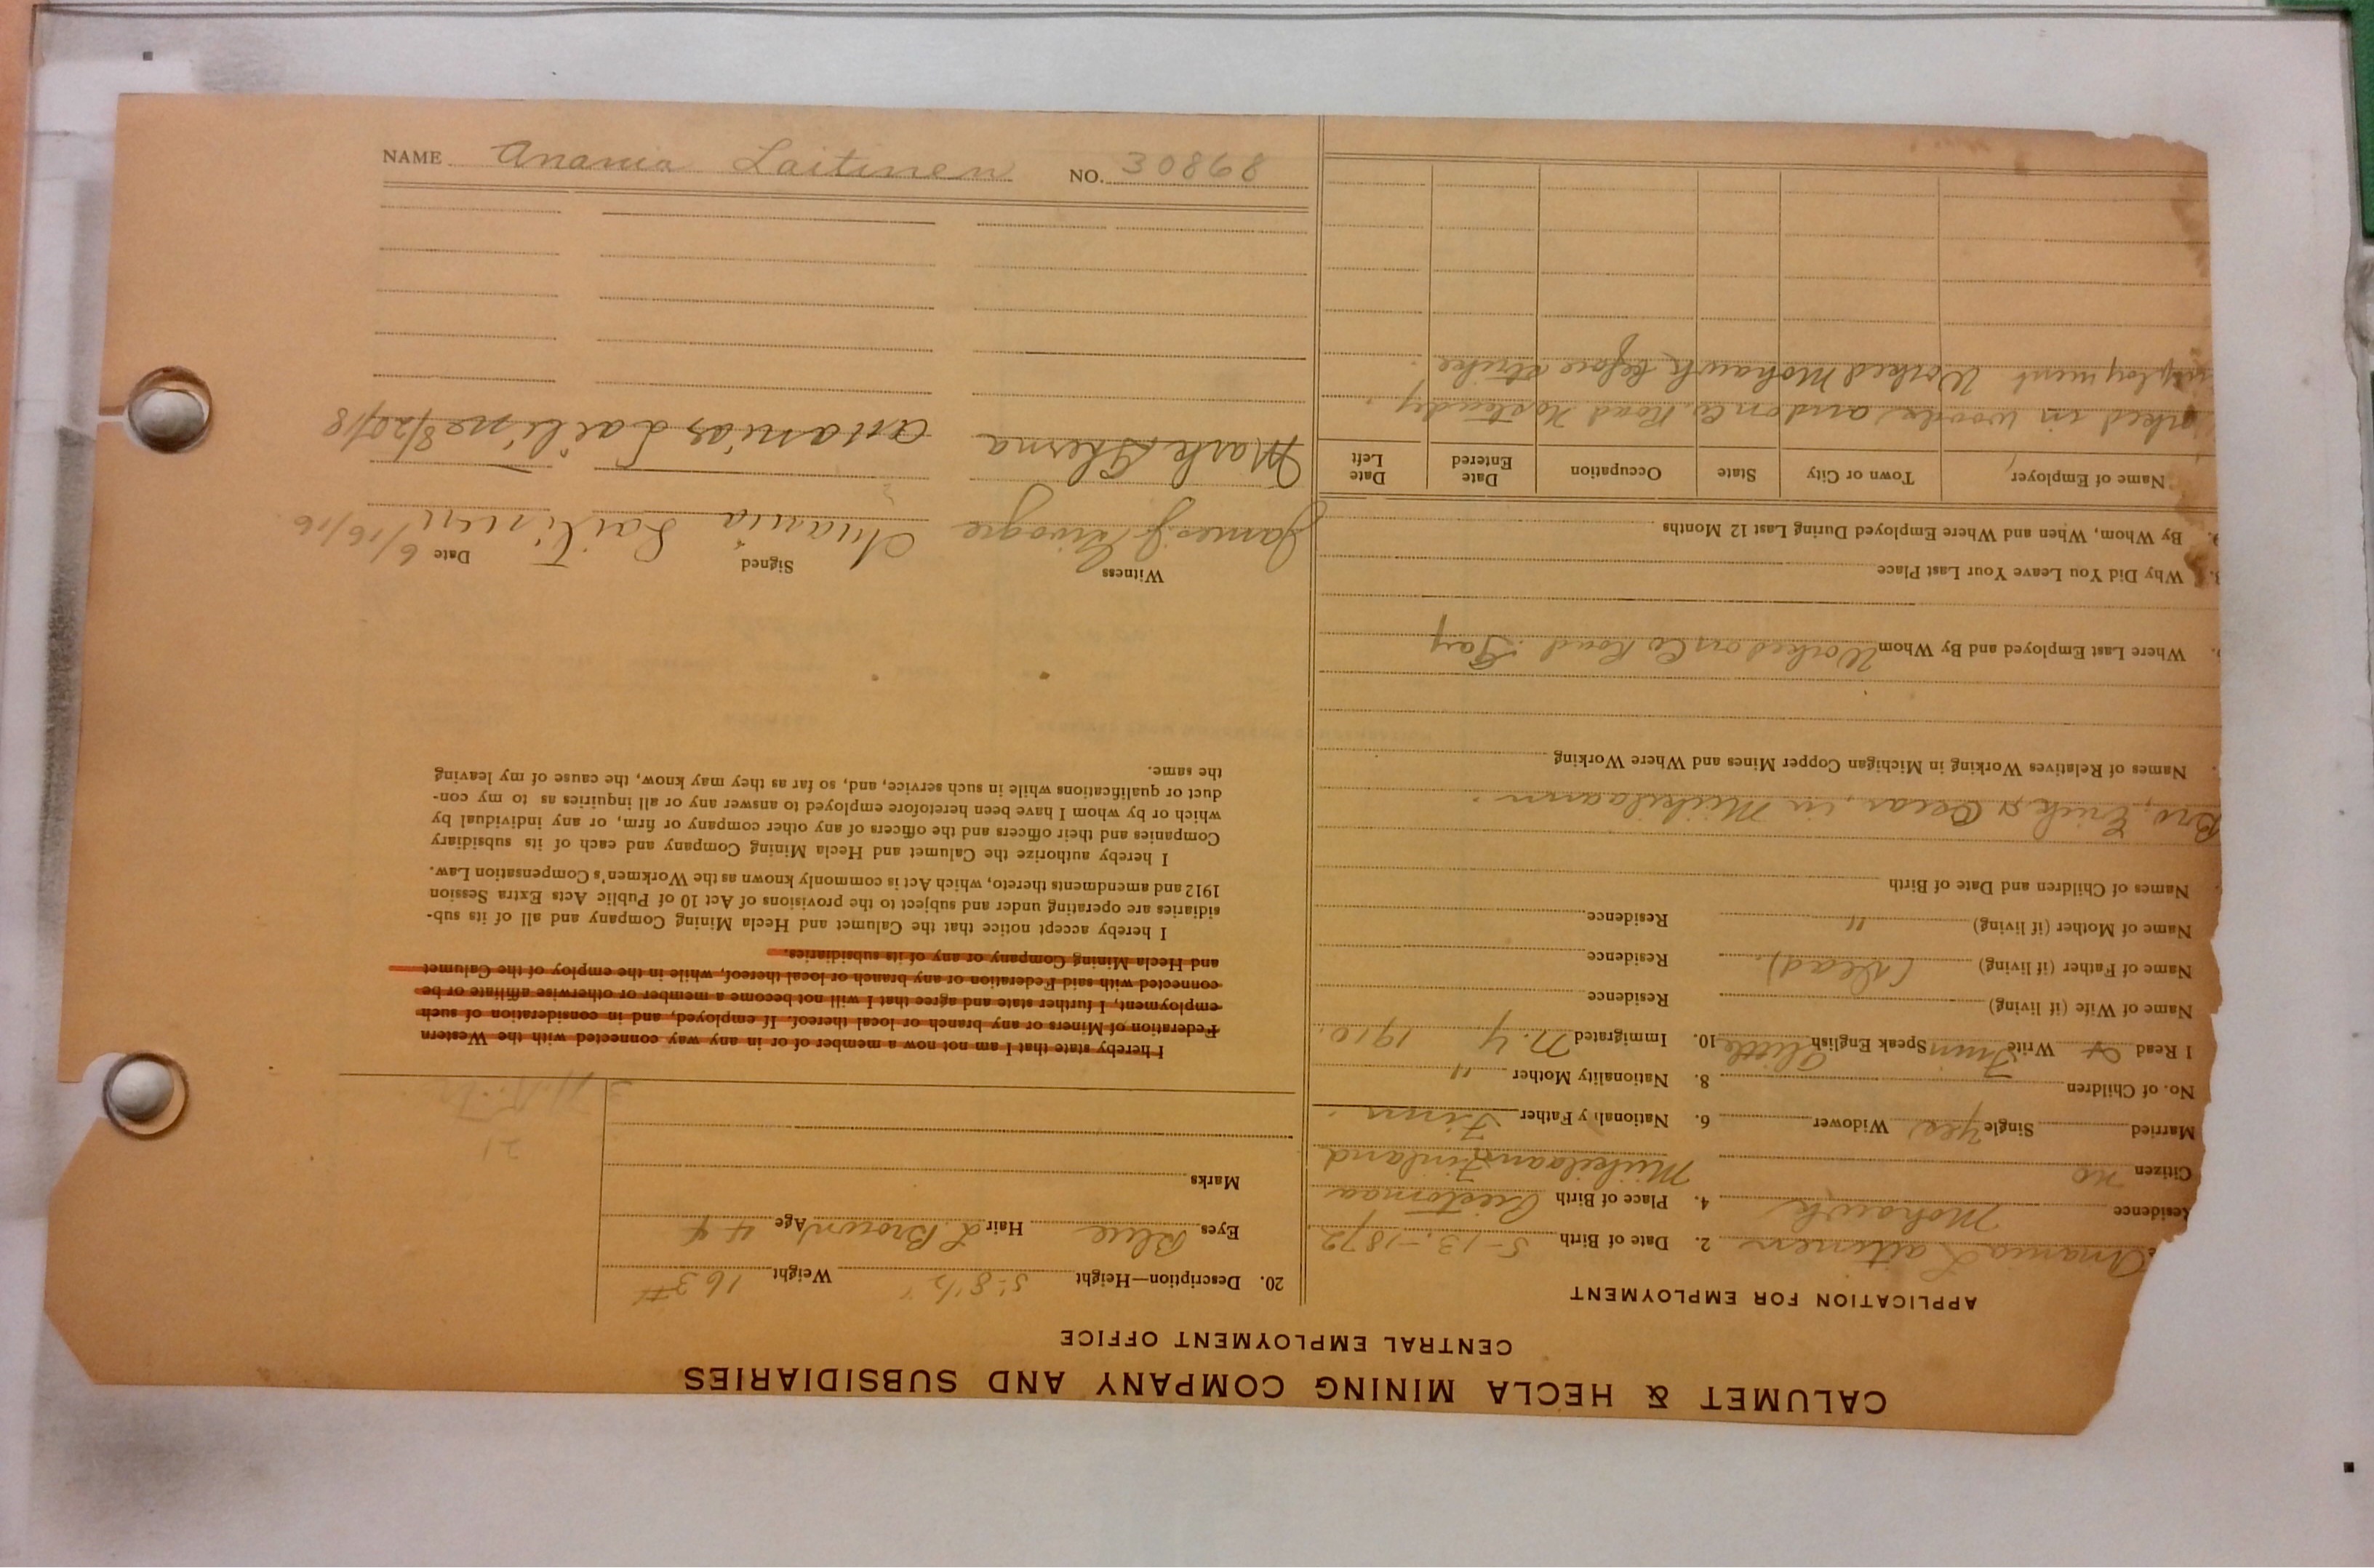 CALUMET & HECLA MINING COMPANY AND SUBSIDIARIES
CENTRAL EMPLOYMENT OFFICE
APPLICATION FOR EMPLOYMENT
e Anania Laitinen 2. Date of Birth 5-13-1872
Residence Mohawk 4. Place of Birth
Citizen no Finland
Married Single yes Widower 6. Nationality Father Finn
No. of Children 8. Nationality Mother "
I Read & Write Finn Speak English little 10. Immigrated N.Y. 1910.
Name of Wife (if living) Residence
Name of Father (if living) (Dead). Residence
Name of Mother (if living) " Residence
Names of Children and Date of Birth
Bro; Erick & Oscar, in
Names of Relatives Working in Michigan Copper Mines and Where Working
Where Last Employed and By Whom Worked on Co Road. Gay
Why Did You Leave Your Last Place
By Whom, When and Where Employed During Last 12 Months
Name of Employer Town or City State Occupation Date Entered Date Left
orked in woods and on Co. Road No steady
mployment Worked Mohawk before strike.
20. Description—Height 5'-8 1/2" Weight 163#
Eyes Blue Hair L Brown Age 44
Marks
21
I hereby state that I am not now a member of or in any way connected with the Western
Federation of Miners or any branch or local thereof. If employed, and in consideration of such
employment, I further state and agree that I will not become a member or otherwise affiliate or be
connected with said Federation or any branch or local thereof, while in the employ of the Calumet
and Hecla Mining Company or any of its subsidiaries.
I hereby accept notice that the Calumet and Hecla Mining Company and all of its sub-
sidiaries are operating under and subject to the provisions of Act 10 of Public Acts Extra Session
1912 and amendments thereto, which Act is commonly known as the Workmen's Compensation Law.
I hereby authorize the Calumet and Hecla Mining Company and each of its subsidiary
Companies and their officers and the officers of any other company or firm, or any individual by
which or by whom I have been heretofore employed to answer any or all inquiries as to my con-
duct or qualifications while in such service, and, so far as they may know, the cause of my leaving
the same.
Witness Signed Date
James J Anania Laitinen 6/16/16
Mark 8/20/18
NAME Anania Laitinen NO. 30868